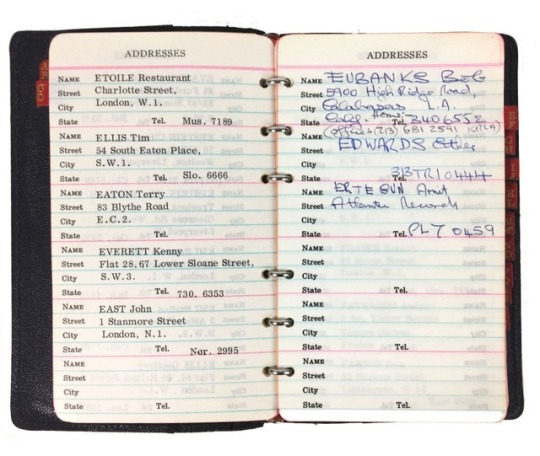 ADDRESSES
NAME ETOILE Restaurant
Street Charlotte Street,
City London, W.1.
State Tel. Mus. 7189
NAME ELLIS Tim
Street 54 South Eaton Place,
City S.W.1.
State Tel. Slo. 6666
NAME EATON Terry
Street 83 Blythe Road
City E.C.2.
State Tel.
NAME EVERETT Kenny
Street Flat 28,67 Lower Sloane Street,
City S.W.3.
State Tel. 730. 6353
NAME EAST John
Street 1 Stanmore Street
City London, N.1.
State Tel. Nor. 2995
NAME
Street
City
State Tel.
ADDRESSES
NAME EUBANKS Bob
Street 5900 High Ridge Road
City Calabasas L.A.
State Calif. Home: Tel. 3406552
NAME (office: (213) 681 2591 (KRLA)
EDWARDS
Street
City
State Tel. 3BTR10444
NAME ERTEGUN Amit
Street Atlantic Records
City
State Tel. PL7 0459
NAME
Street
City
State Tel.
NAME
Street
City
State Tel.
NAME
Street
City
State Tel.